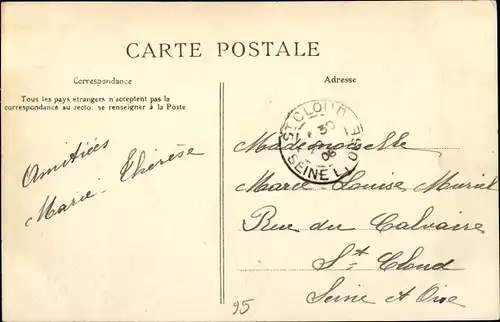 CARTE POSTALE
Correspondance
Tous les pays étrangers n'acceptent pas la
correspondance au recto, se renseigner à la Poste
Amitiés
Marie-Thérèse
Adresse
ST CLOUD
SEINE-ET-OISE
30
08
Mademoiselle
Marie-Louise Muriel
Rue du Calvaire
St Cloud
Seine et Oise
95